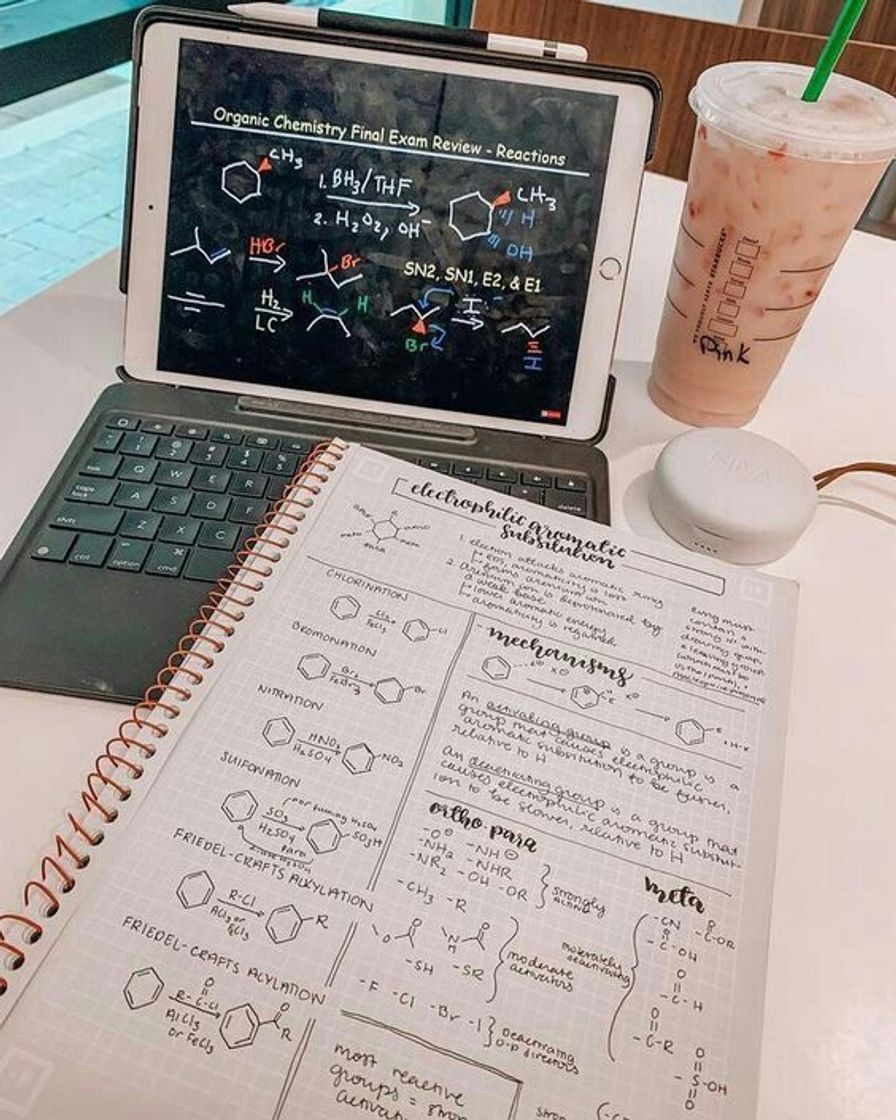 Organic Chemistry Final Exam Review - Reactions
CH3
1. BH3/THF
2. H2O2, OH-
CH3
H
OH
HBr
Br
SN2, SN1, E2, & E1
H2
LC
H
H
I:-
Br
I
STARBUCKS
Pink
Q W E R
A S D F
Z X C
caps lock
shift
ctrl
option
cmd
delete
electrophilic aromatic
substitution
meta
para
1. electron attacks aromatic ring
2. arenium ion is deprotonated by
a weak base
lower aromatic energy
aromaticity is regained
CHLORINATION
Cl2
FeCl3
Cl
BROMONATION
Br2
FeBr3
Br
NITRATION
HNO3
H2SO4
NO2
SULFONATION
SO3
H2SO4
SO3H
FRIEDEL-CRAFTS ALKYLATION
R-Cl
AlCl3 or
FeCl3
R
FRIEDEL-CRAFTS ACYLATION
O
R-C-Cl
AlCl3
or FeCl3
O
R
mechanisms
An activating group is a group is a
group that causes electrophilic
aromatic substitution to be faster,
relative to H
An deactivating group is a group that
causes electrophilic aromatic substitut-
ion to be slower, relative to H
ortho para
-O⊖ -NH⊖
-NH2 -NHR
-NR2 -OH -OR
strongly
-CH3 -R
O
N
H
O
-SH -SR
moderate
activators
-F -Cl -Br -I
deactivating
o-p directors
meta
moderately
deactivating
-CN
O
-C-OR
O
-C-OH
O
-C-H
O
-C-R
O
-S-OH
O
most reactive
groups =
strong